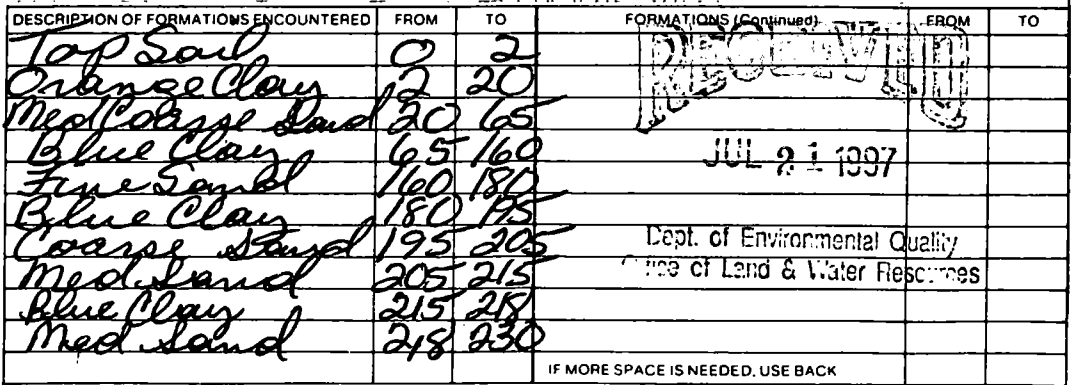 DESCRIPTION OF FORMATIONS ENCOUNTERED FROM TO FORMATIONS (Continued) FROM TO
Top Soil 0 2
Orange Clay 2 20
Med Coarse Sand 20 65
Blue Clay 65 160
Fine Sand 160 180
Blue Clay 180 195
Coarse Sand 195 205
Med Sand 205 215
Blue Clay 215 218
Med Sand 218 230
RECEIVED
JUL 21 1997
Dept. of Environmental Quality
Office of Land & Water Resources
IF MORE SPACE IS NEEDED, USE BACK